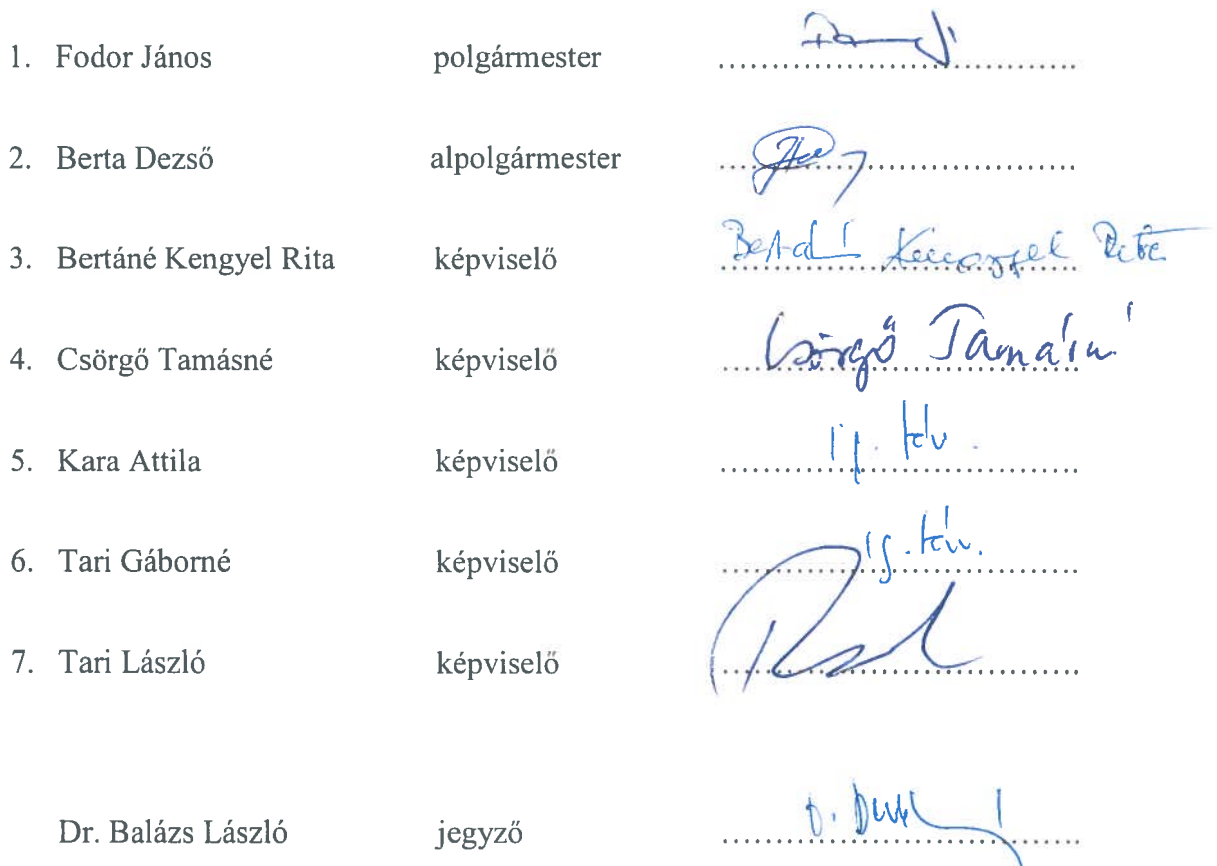 1. Fodor János polgármester
2. Berta Dezső alpolgármester
3. Bertáné Kengyel Rita képviselő Bertáné Kengyel Rita
4. Csörgő Tamásné képviselő Csörgő Tamásné
5. Kara Attila képviselő ig. táv.
6. Tari Gáborné képviselő ig. táv.
7. Tari László képviselő
Dr. Balázs László jegyző